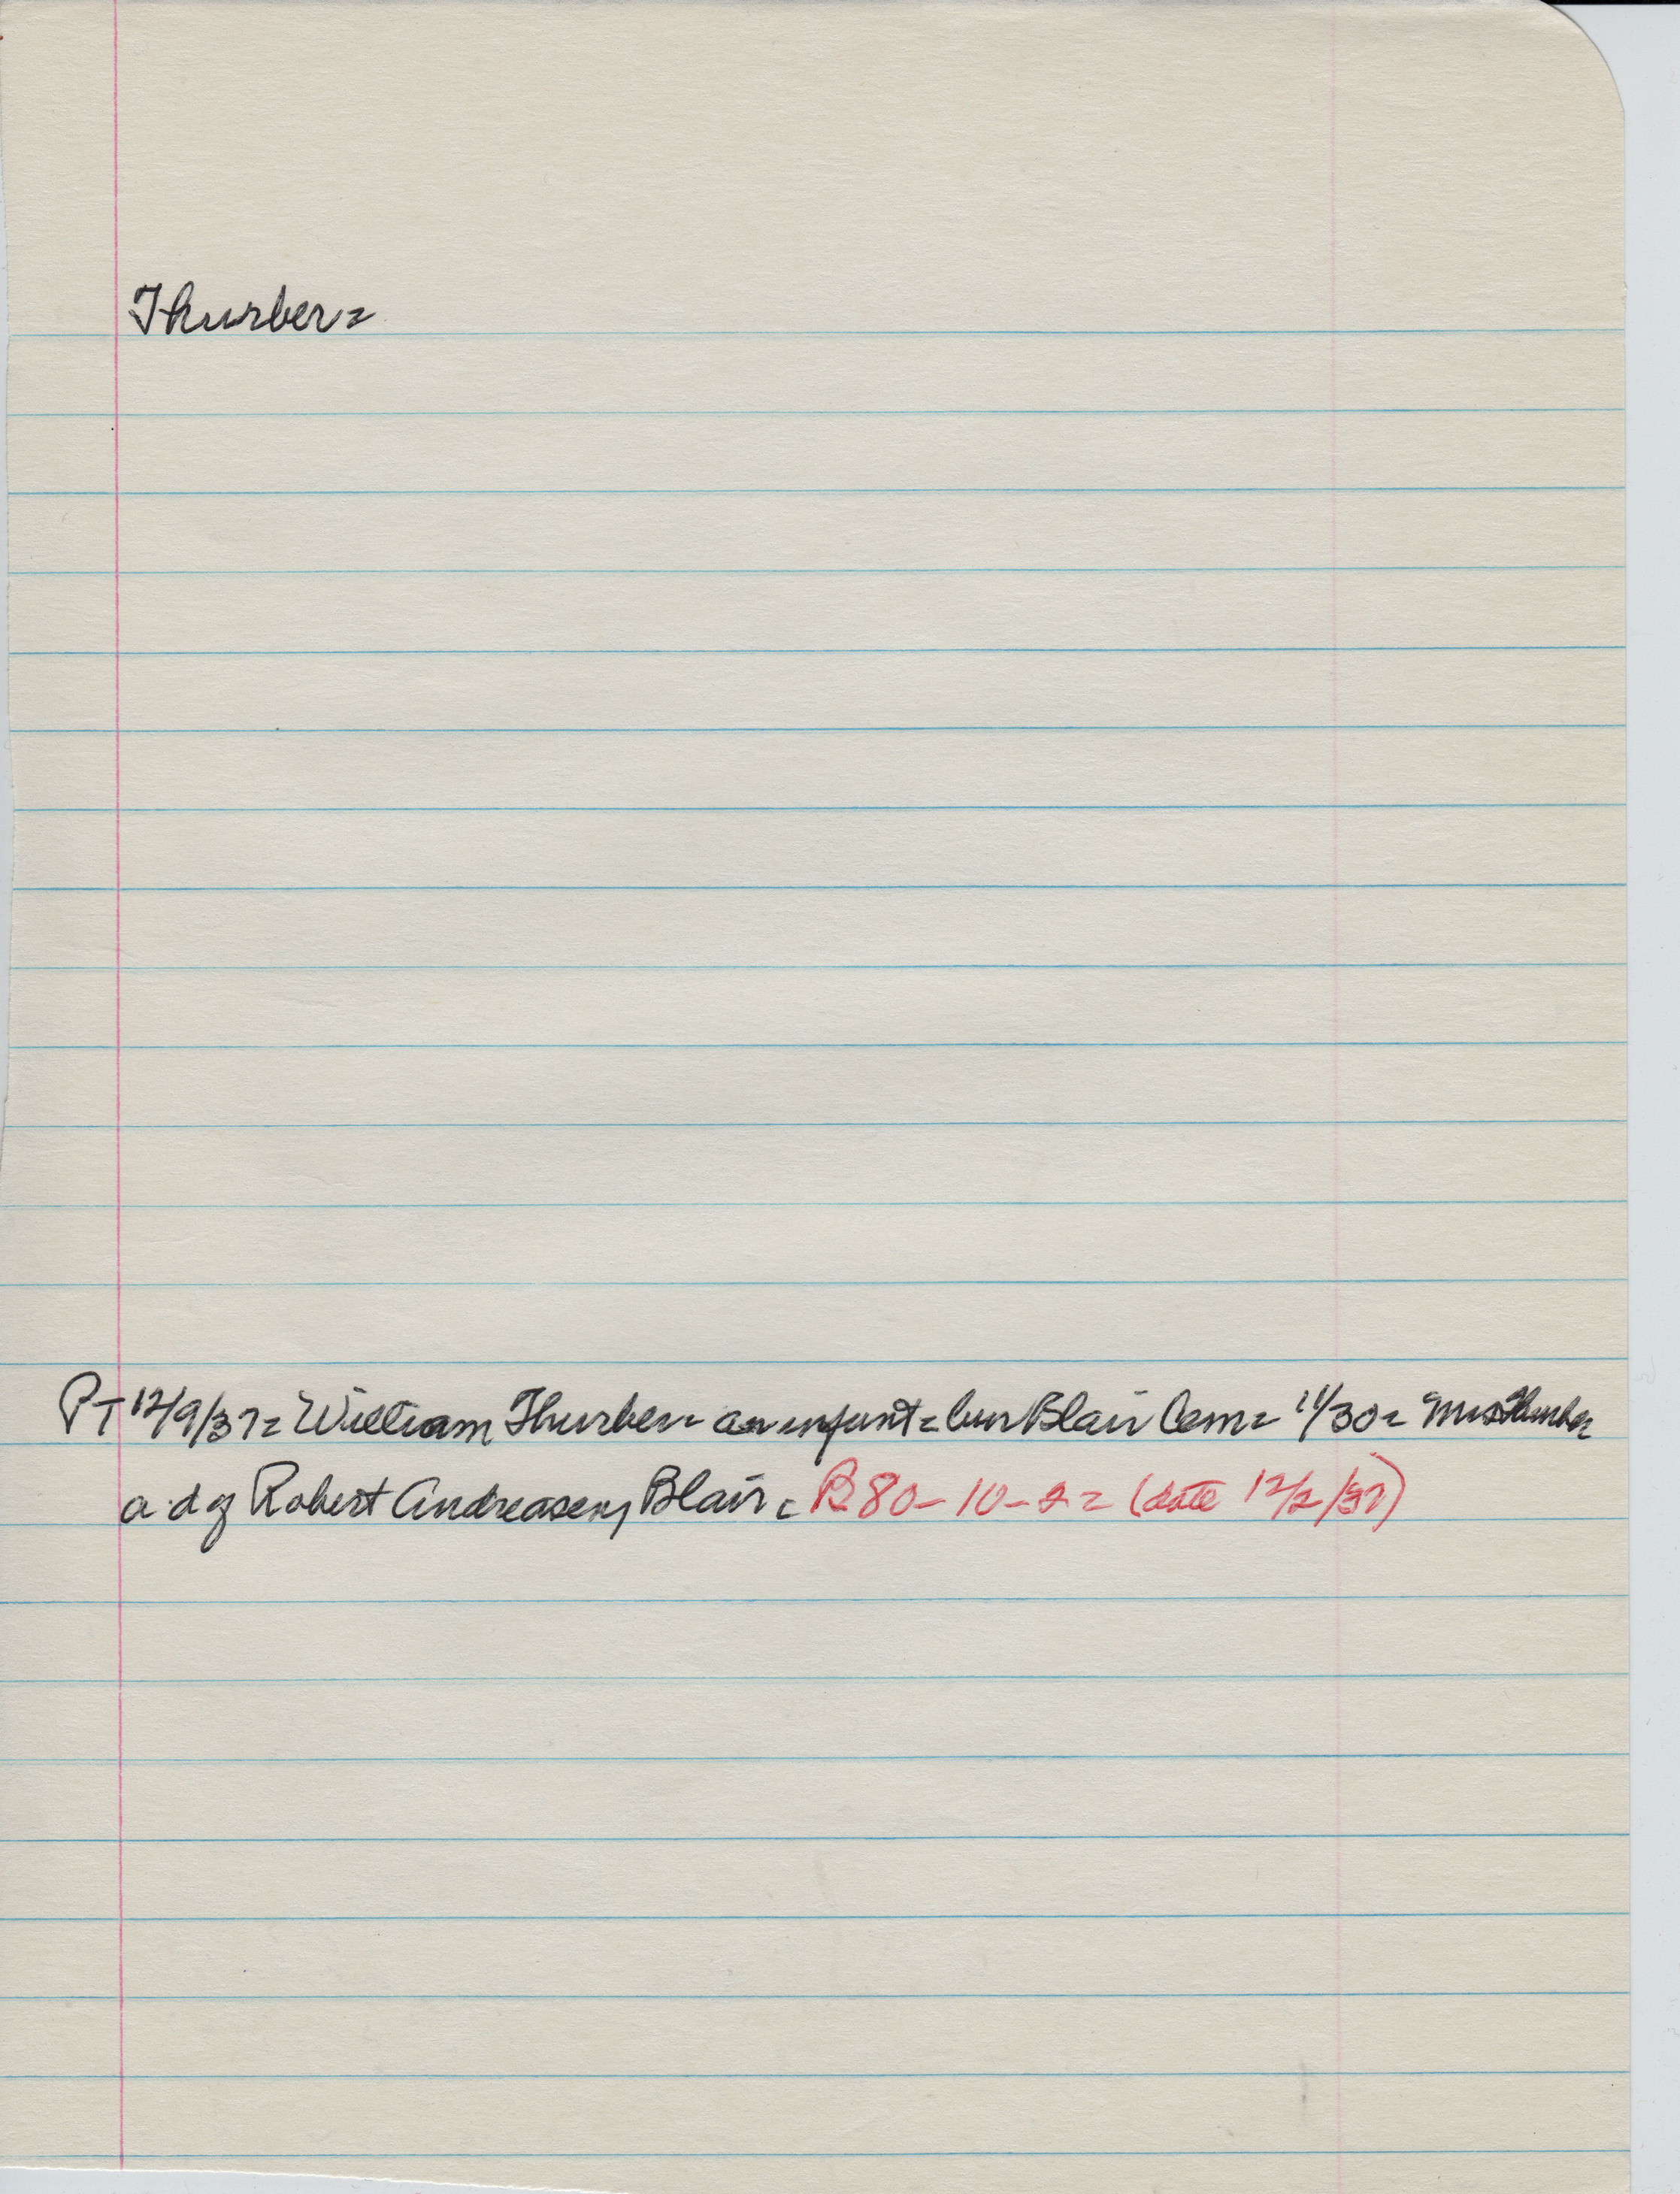 Thurber=
PT 12/9/37= William Thurber= an infant= bur Blair Cem= 11/30= Mrs Thurber
a d of Robert Andreasen, Blair. B80-10-2= (date 12/2/37)